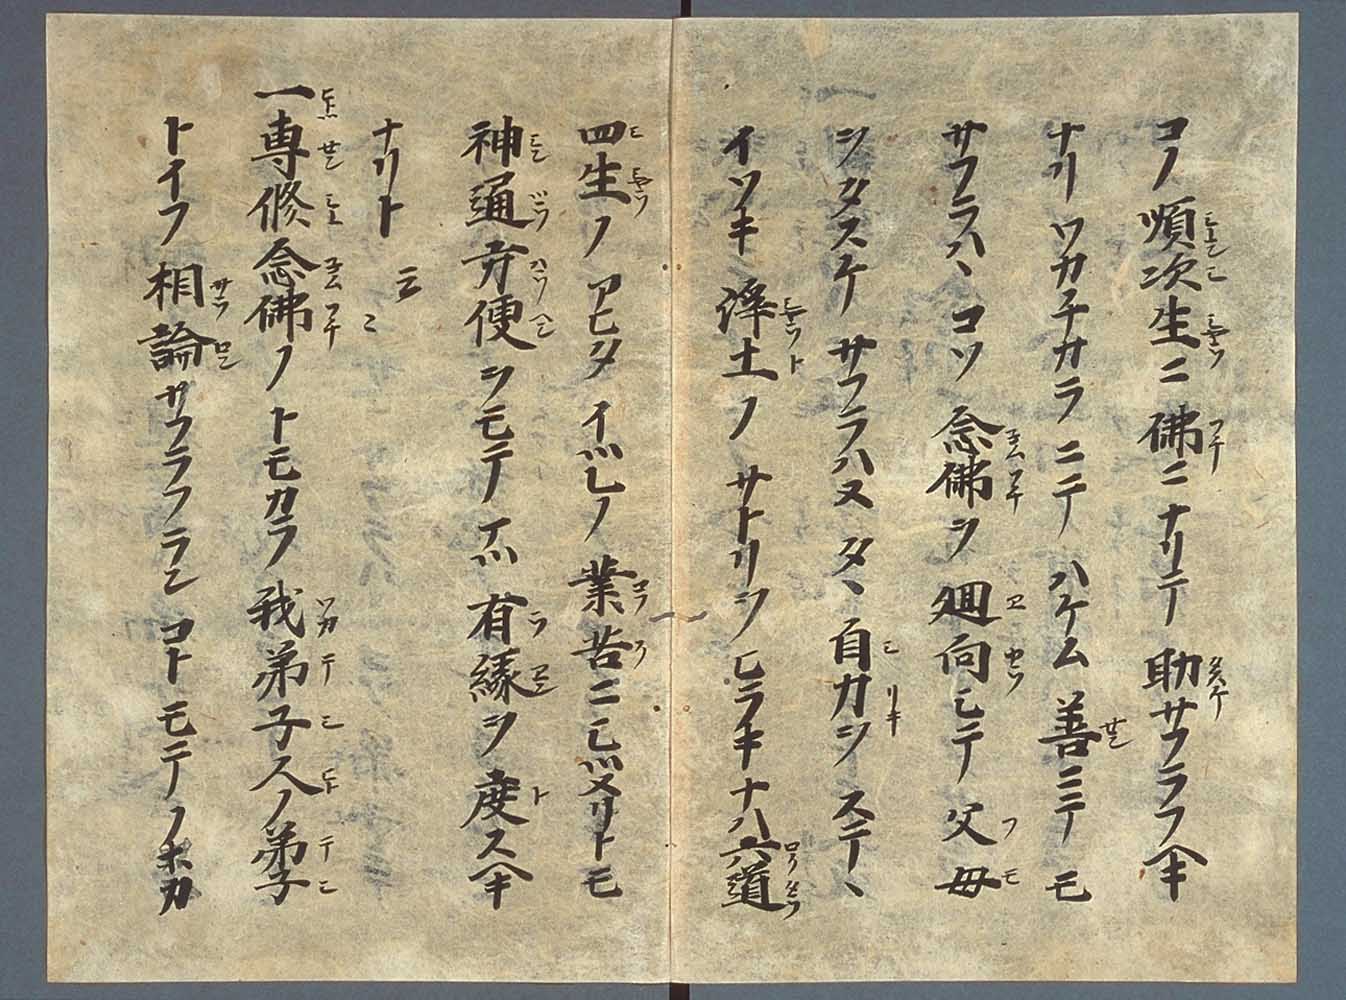 コノ順次生ニ佛ニナリテ助サフラフヘキ
ナリワカチカラニテハケム善ニテモ
サフラハヽコソ念佛ヲ廻向シテ父母
ヲタスケサフラハメタヽ自力ヲステヽ
イソキ浄土ノサトリヲヒラキナハ六道
四生ノアヒタイツレノ業苦ニシツメリトモ
神通方便ヲモテマツ有縁ヲ度スヘキ
ナリト云々
一専修念佛ノトモカラ我弟子人ノ弟子
トイフ相論サフラフランコトモテノホカ